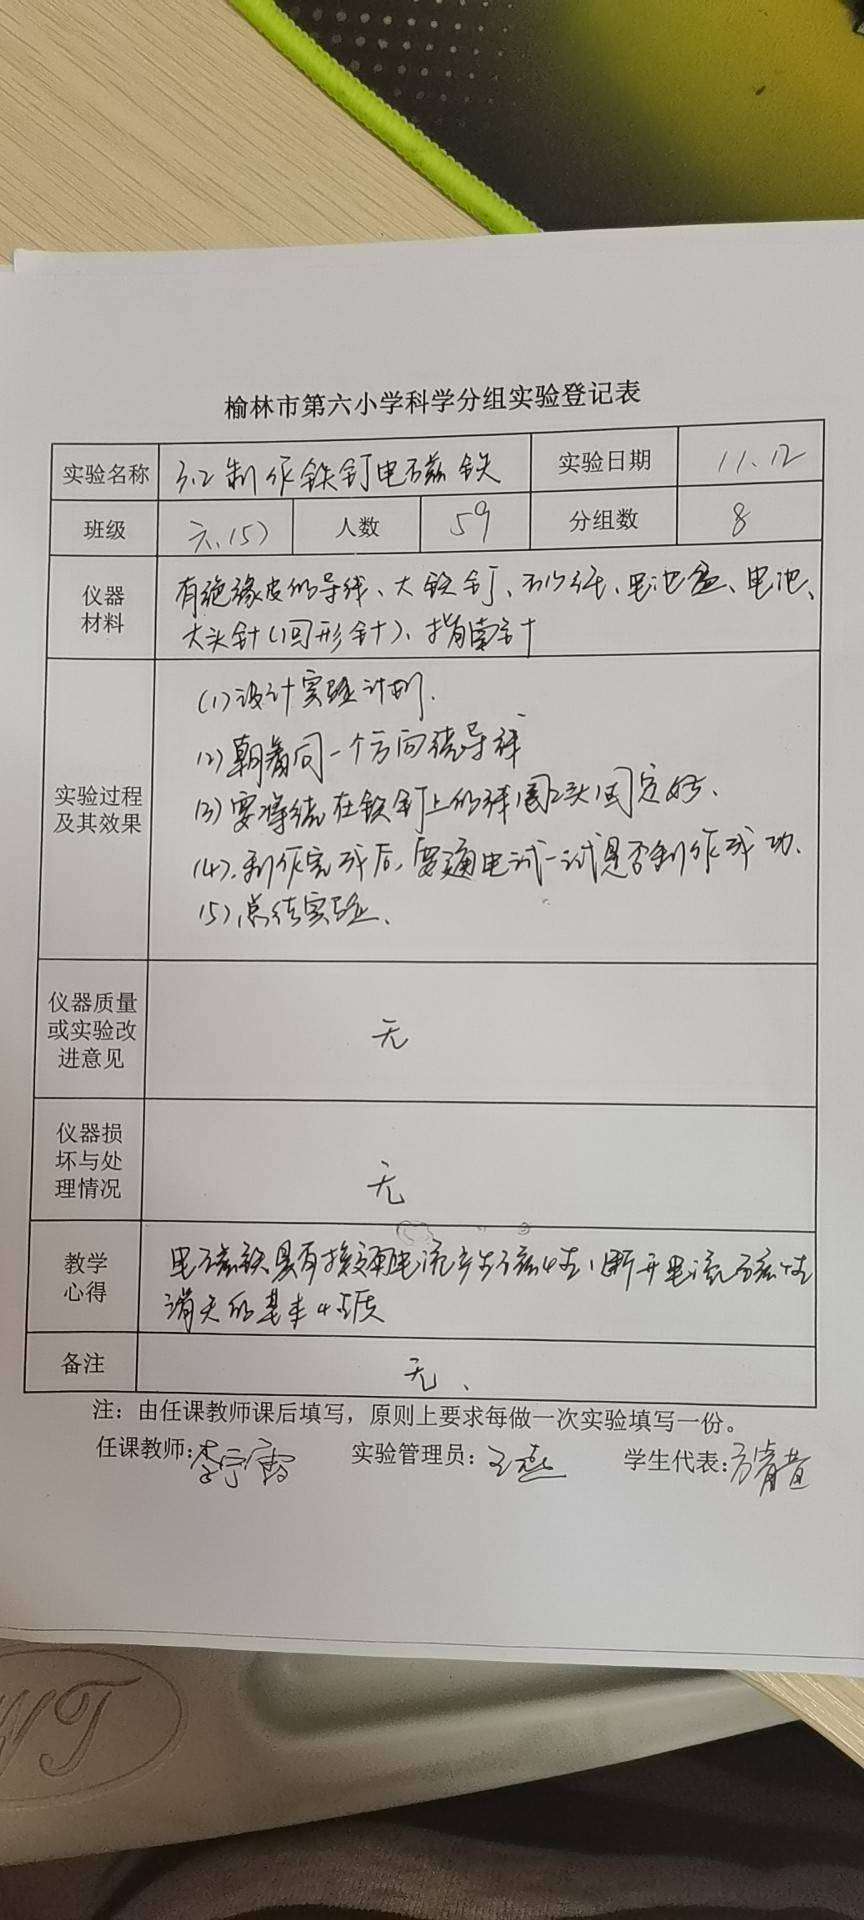 榆林市第六小学科学分组实验登记表
实验名称 3.2 制作铁钉电磁铁 实验日期 11.12
班级 六.(5) 人数 59 分组数 8
仪器材料 有绝缘皮的导线、大铁钉、砂纸、电池盒、电池、
大头针(回形针)、指南针
实验过程及其效果
(1)设计实验计划.
(2)朝着同一个方向绕导线
(3)要将绕在铁钉上的线圈2头固定好、
(4).制作完成后,要通电试一试是否制作成功.
(5).总结实验、
仪器质量或实验改进意见 无
仪器损坏与处理情况 无
教学心得 电磁铁具有接通电流产生磁性,断开电流磁性
消失的基本性质
备注 无、
注：由任课教师课后填写，原则上要求每做一次实验填写一份。
任课教师: 李宁霞 实验管理员: 王燕 学生代表:
WT